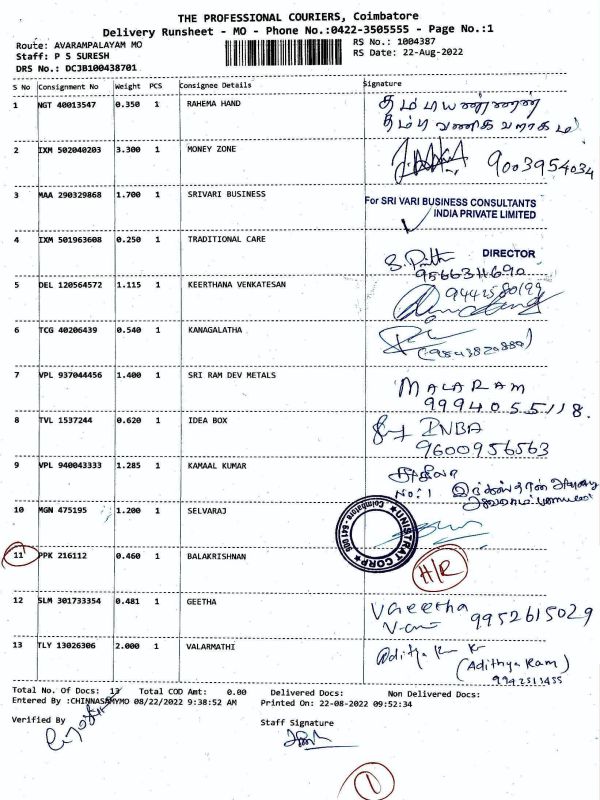 THE PROFESSIONAL COURIERS, Coimbatore
Delivery Runsheet - MO - Phone No.:0422-3505555 - Page No.:1
Route: AVARAMPALAYAM MO
Staff: P S SURESH
DRS No.: DCJB100438701
RS No.: 1004387
RS Date: 22-Aug-2022
S No Consignment No Weight PCS Consignee Details Signature
1 NGT 40013547 0.350 1 RAHEMA HAND
2 IXM 502040203 3.300 1 MONEY ZONE 9003954034
3 MAA 290329868 1.700 1 SRIVARI BUSINESS
For SRI VARI BUSINESS CONSULTANTS
INDIA PRIVATE LIMITED
DIRECTOR
4 IXM 501963608 0.250 1 TRADITIONAL CARE
9566311690
5 DEL 120564572 1.115 1 KEERTHANA VENKATESAN
6 TCG 40206439 0.540 1 KANAGALATHA
(9843820880)
7 VPL 937044456 1.400 1 SRI RAM DEV METALS MALARAM
9994055118.
8 TVL 1537244 0.620 1 IDEA BOX INBA
9600956563
9 VPL 940043333 1.285 1 KAMAAL KUMAR
No:1
10 MGN 475195 1.200 1 SELVARAJ
UNISTRAT CORP
11 PPK 216112 0.460 1 BALAKRISHNAN H/R
12 SLM 301733354 0.481 1 GEETHA V Geetha 9952615029
13 TLY 13026306 2.000 1 VALARMATHI
(Adithya Ram)
Total No. Of Docs: 13 Total COD Amt: 0.00 Delivered Docs: Non Delivered Docs:
Entered By :CHINNASAMYMO 08/22/2022 9:38:52 AM Printed On: 22-08-2022 09:52:34
Verified By Staff Signature
1